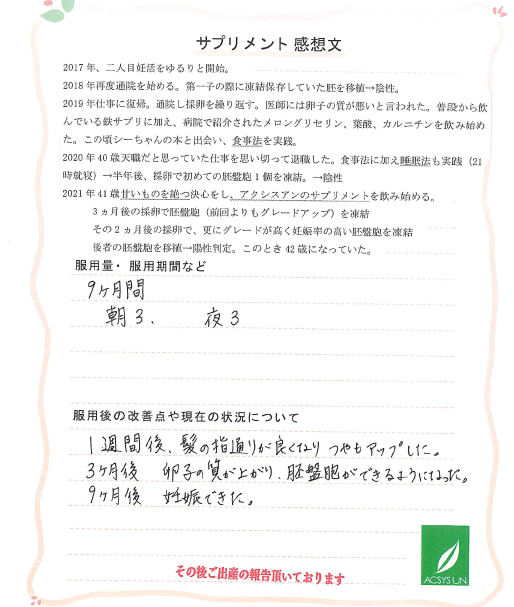 サプリメント 感想文
2017年、二人目妊活をゆるりと開始。
2018年再度通院を始める。第一子の際に凍結保存していた胚を移植→陰性。
2019年仕事に復帰。通院し採卵を繰り返す。医師には卵子の質が悪いと言われた。普段から飲
んでいる鉄サプリに加え、病院で紹介されたメロングリセリン、葉酸、カルニチンを飲み始め
た。この頃シーちゃんの本と出会い、食事法を実践。
2020年40歳天職だと思っていた仕事を思い切って退職した。食事法に加え睡眠法も実践（21
時就寝）→半年後、採卵で初めての胚盤胞1個を凍結。→陰性
2021年41歳甘いものを絶つ決心をし、アクシスアンのサプリメントを飲み始める。
3ヵ月後の採卵で胚盤胞（前回よりもグレードアップ）を凍結
その2ヵ月後の採卵で、更にグレードが高く妊娠率の高い胚盤胞を凍結
後者の胚盤胞を移植→陽性判定。このとき42歳になっていた。
服用量・服用期間など
9ヶ月間
朝3、 夜3
服用後の改善点や現在の状況について
1週間後、髪の指通りが良くなり つやもアップした。
3ヶ月後 卵子の質が上がり、胚盤胞ができるようになった。
9ヶ月後 妊娠できた。
その後ご出産の報告頂いております
ACSYS UN